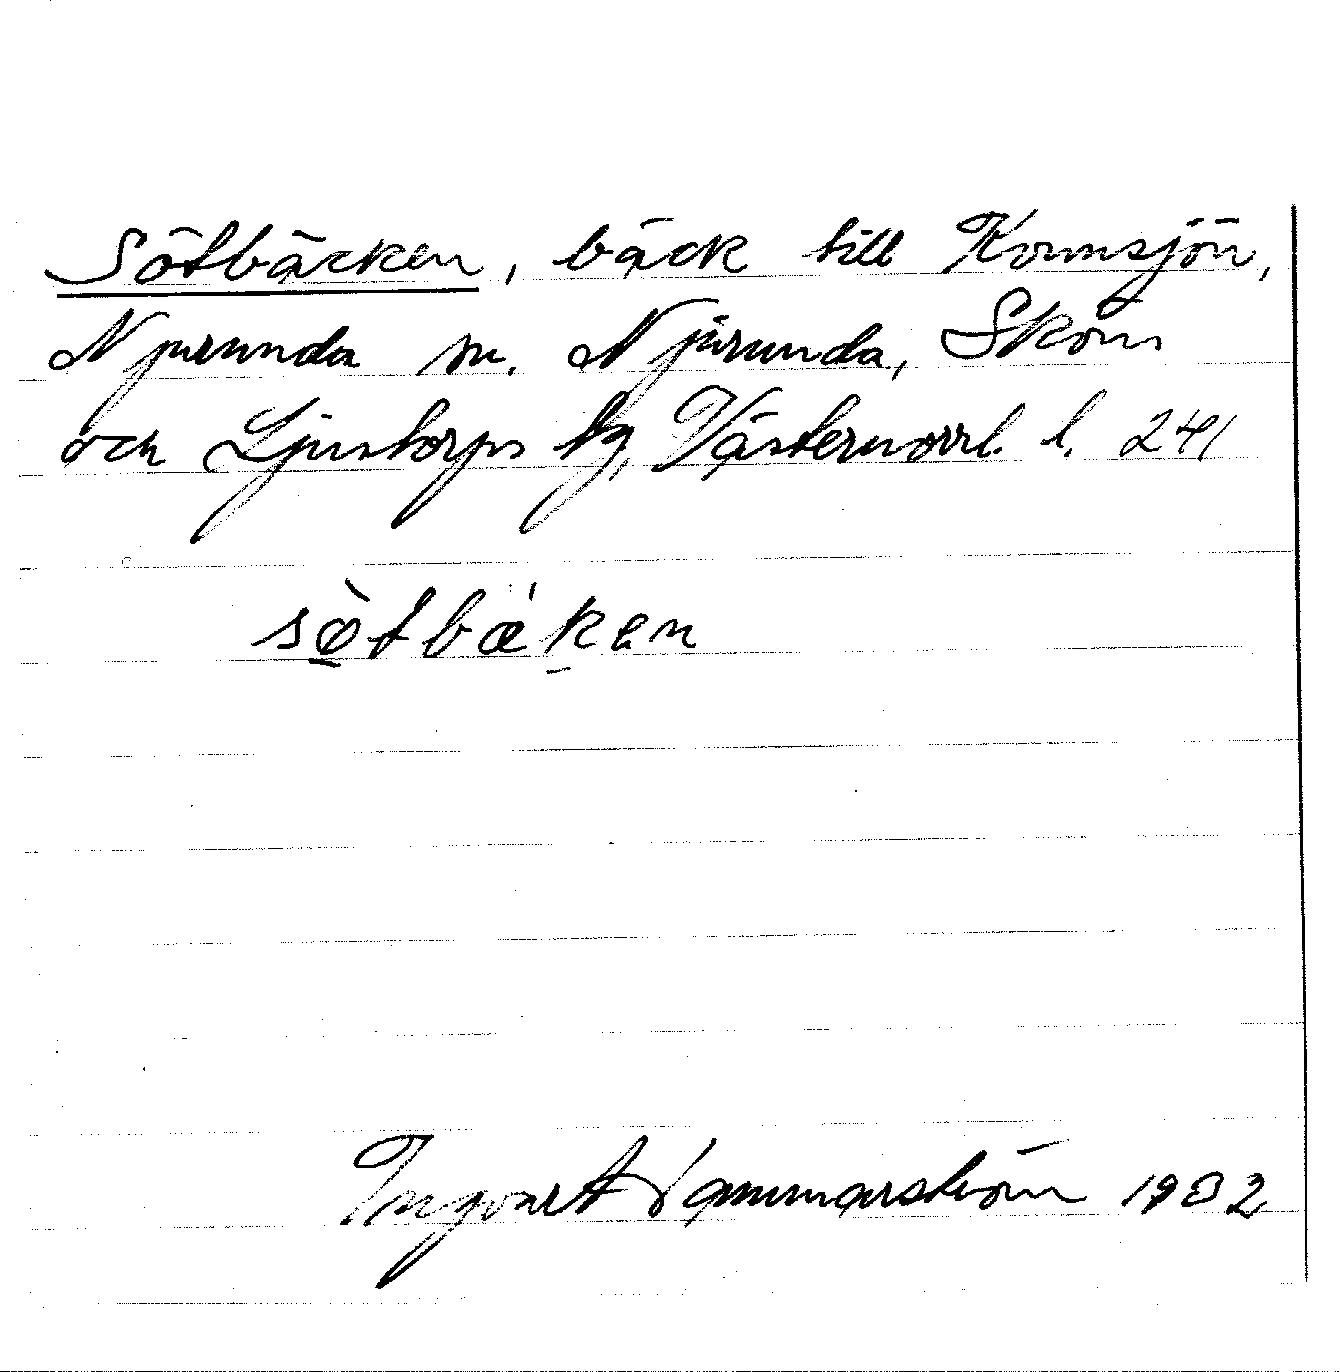 Sötbäcken, bäck till Kornsjön,
Njurunda sn. Njurunda, Sköns
och Ljustorps tg, Västernorrl. l. 241
sö̀tbæken
Ingvar Hammarström 1982